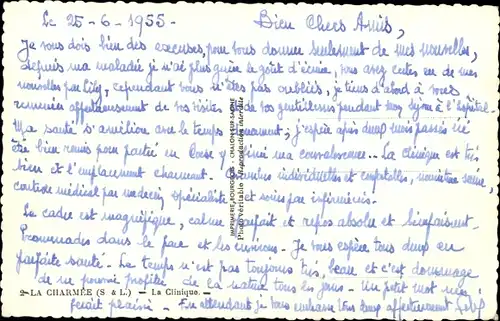 Le 25-6-1955-
Bien Chers Amis,
Je vous dois bien des excuses, pour vous donner seulement de mes nouvelles,
depuis ma maladie je n'ai plus guère le goût d'écrire, vous avez eu de mes
nouvelles par cependant vous n'êtes pas oubliés, je tiens d'abord à vous
remercier affectueusement de vos visites de vos gentillesses pendant mon séjour à l'hôpital.
Ma santé s'améliore avec le temps j'espère après deux mois passés ici
être bien remis pour partir en Corse y finir ma convalescence.. La clinique est très
bien et l'emplacement charmant. individuelles et nourriture saine,
contrôle médical par médecin spécialiste et soins par infirmières.
Le cadre est magnifique, calme parfait et repos absolu et bienfaisant.
Promenades dans le parc et les environs. Je vous espère tous deux en
parfaite santé. Le temps n'est pas toujours très beau et c'est dommage
de ne pouvoir profiter de la nature tous les jours. Un petit mot me
ferait plaisir. En attendant je vous embrasse tous deux affectueusement
2-LA CHARMÉE (S & L.) - La Clinique. -
IMPRIMERIE BOURGEOIS - CHALON-SUR-SAÔNE
Photo véritable - Reproduction interdite